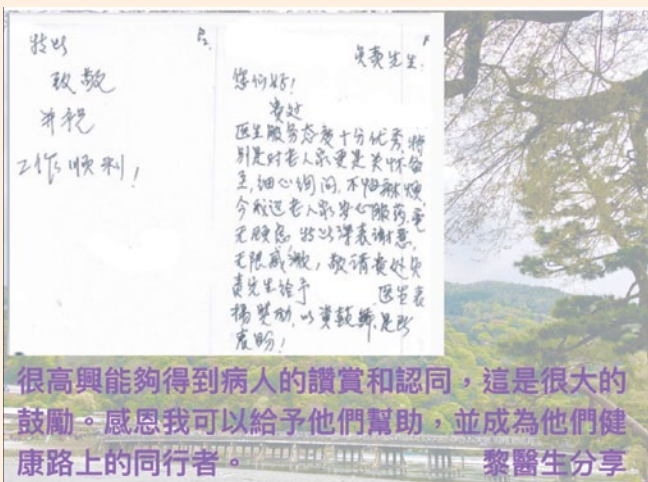 负责先生:
您们好!
贵处
医生服务态度十分优秀,特
别是对老人家更是关怀备
至,细心询问,不怕麻烦,
令我这老人家安心服药,毫
无顾忌,特此深表谢意,
无限感激,敬请贵处负
责先生给予 医生表
扬奖励,以资鼓励,是所
衷盼!
P2.
特此
致敬
并祝
工作顺利!
很高興能夠得到病人的讚賞和認同,這是很大的
鼓勵。感恩我可以給予他們幫助,並成為他們健
康路上的同行者。 黎醫生分享